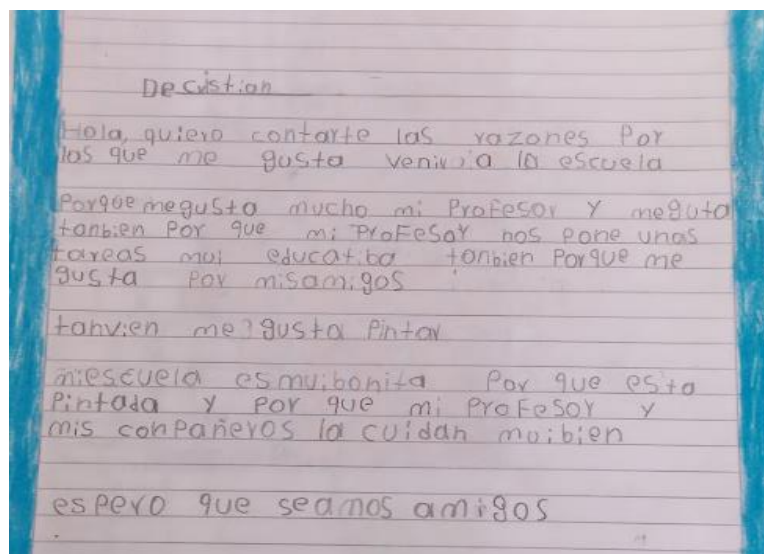 De cristian
Hola, quiero contarte las razones Por
las que me gusta venir a la escuela
Porque megusta mucho mi Profesor Y meguta
tanbien Por que mi ProFesor nos Pone unas
tareas mui educatiba tonbien Porque me
gusta Por misamigos
tanvien me gusta Pintar
miescuela esmuibonita Por que esta
Pintada Y Por que mi ProFesor Y
mis conPañeros la cuidan moibien
espero que seamos amigos